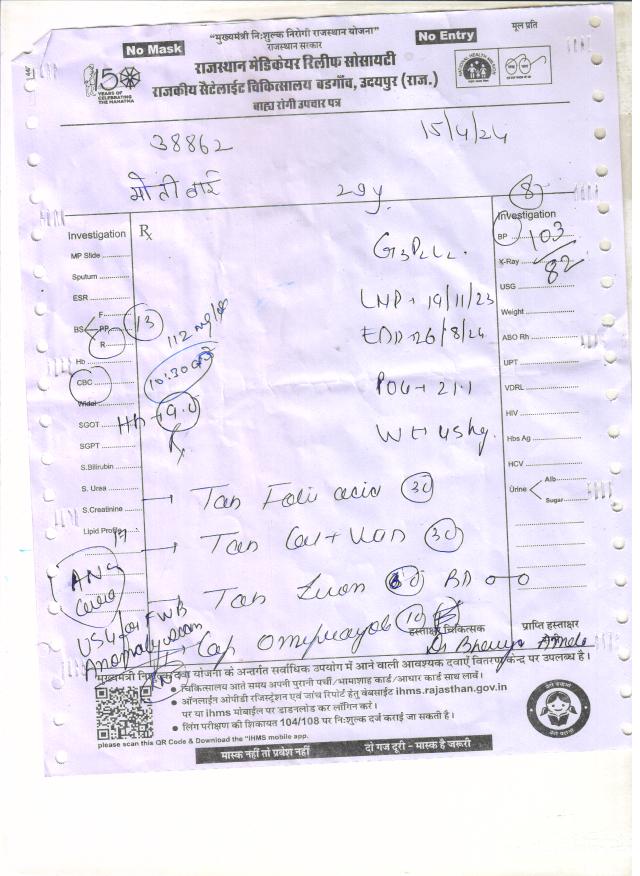 "मुख्यमत्री नि:शुल्क निरोगी राजस्थान योजना"
मूल प्रति
No Mask
राजस्थान सरकार
No Entry
राजस्थान मेडिकेयर रिलीफ सोसायटी
150
YEARS OF CELEBRATING THE MAHATMA
राजकीय सैटेलाईट चिकित्सालय बडगाँव, उदयपुर (राज.)
बाह्य रोगी उपचार पत्र
38862
15/4/24
29y
8
Investigation
MP Slide
Sputum
ESR
BS F
PP 13
R
112 mg/
10:30
Hb
CBC
Widal
SGOT
Hb → 9.0
SGPT
S.Bilirubin
S. Urea
S.Creatinine
Lipid Profile
ANC
USG for FWB
Anomaly scan
Rx
G3P2L2
LMP → 19/11/23
EDD → 26/8/24
POG → 21.1
Wt → 45kg
Rx
→ Tab Foli acid 30
→ Tab Cal +
→ Tab BD o-o
Cap
Investigation
BP 103/82
X-Ray
USG
Weight
ABO Rh
UPT
VDRL
HIV
Hbs Ag
HCV
Urine Alb
Sugar
हस्ताक्षर चिकित्सक
प्राप्ति हस्ताक्षर
Dr
मुख्यमंत्री नि:शुल्क दवा योजना के अन्तर्गत सर्वाधिक उपयोग में आने वाली आवश्यक दवाएँ वितरण केन्द्र पर उपलब्ध है।
• चिकित्सालय आते समय अपनी पुरानी पर्ची/भामाशाह कार्ड/आधार कार्ड साथ लावें।
• ऑनलाईन ओपीडी रजिस्ट्रेशन एवं जांच रिपोर्ट हेतु वेबसाईट ihms.rajasthan.gov.in
पर या ihms मोबाईल पर डाउनलोड कर लॉगिन करें।
• लिंग परीक्षण की शिकायत 104/108 पर नि:शुल्क दर्ज कराई जा सकती है।
please scan this QR Code & Download the "IHMS mobile app.
मास्क नहीं तो प्रवेश नहीं
दो गज दूरी - मास्क है जरूरी